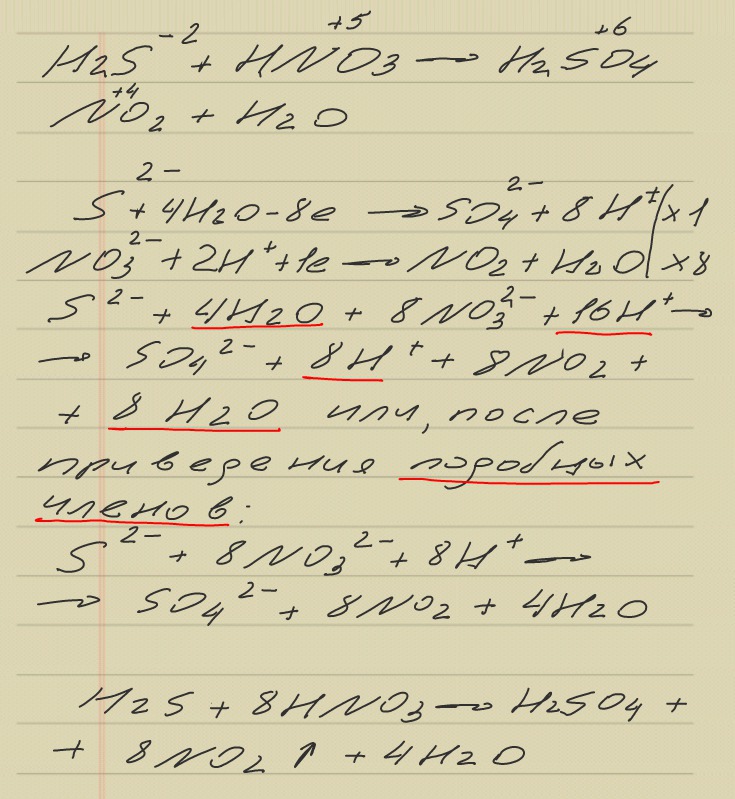 H₂S⁻² + HN⁺⁵O₃ → H₂S⁺⁶O₄
N⁺⁴O₂ + H₂O
S²⁻ + 4H₂O - 8e → SO₄²⁻ + 8H⁺ | x 1
NO₃²⁻ + 2H⁺ + 1e → NO₂ + H₂O | x 8
S²⁻ + 4H₂O + 8NO₃²⁻ + 16H⁺ →
→ SO₄²⁻ + 8H⁺ + 8NO₂ +
+ 8H₂O или, после
приведения подобных
членов:
S²⁻ + 8NO₃²⁻ + 8H⁺ →
→ SO₄²⁻ + 8NO₂ + 4H₂O
H₂S + 8HNO₃ → H₂SO₄ +
+ 8NO₂ ↑ + 4H₂O